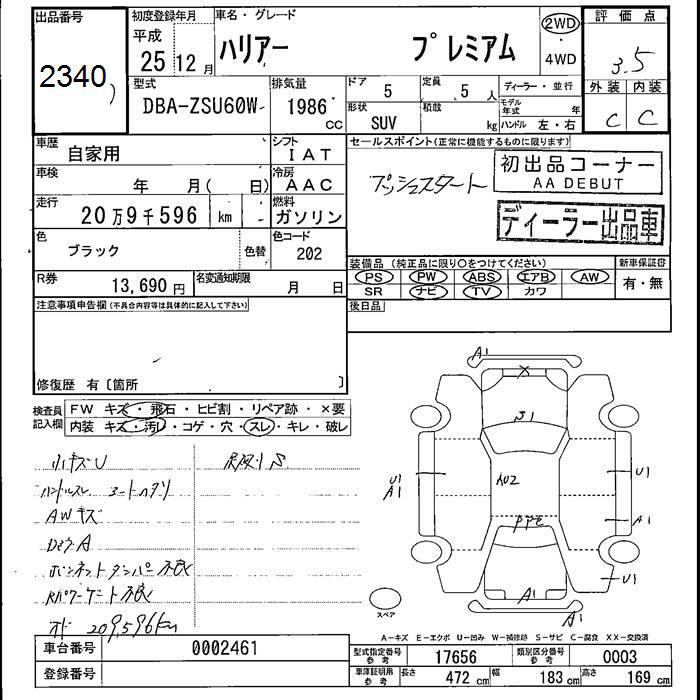 出品番号 初度登録年月 車名・グレード 評価点
2340 平成 25 12月 ハリアー プレミアム 2WD・4WD 3.5
型式 排気量 ドア 定員 ディーラー・並行 外装 内装
DBA-ZSU60W 1986cc 5 5人 モデル年式 年 C C
形状 SUV 積載 kg ハンドル 左・右
車歴 自家用 シフト IAT セールスポイント(正常に機能するものに限ります)
車検 年 月( 日) 冷房 AAC プッシュスタート 初出品コーナー
AA DEBUT
走行 20万9千596 km 燃料 ガソリン ディーラー出品車
色 ブラック 色替 色コード 202
装備品(純正品に限り○をつけてください) 新車保証書
R券 13,690円 名変通知期限 月 日 PS PW ABS エアB AW 有・無
SR ナビ TV カワ
注意事項申告欄(不具合内容等は具体的に記入して下さい) 後日品
修復歴 有〔箇所 〕
検査員記入欄 FW キズ・飛石・ヒビ割・リペア跡・×要
内装 キズ・汚レ・コゲ・穴・スレ・キレ・破レ
A1
X
S1
小キズU
ハンドルスレ シートヘタリ
U1 A1 U1
AWキズ
A1
DミラA
ボンネットダンパー不良
U1
Rパワーゲート不良
A1 A1
スペア
メーター 209,596km
A−キズ E−エクボ U−凹み W−補修跡 S−サビ C−腐食 XX−交換済
車台番号 0002461 型式指定番号 参考 17656 類別区分番号 参考 0003
登録番号 車庫証明用 参考 長さ 472cm 幅 183cm 高さ 169cm